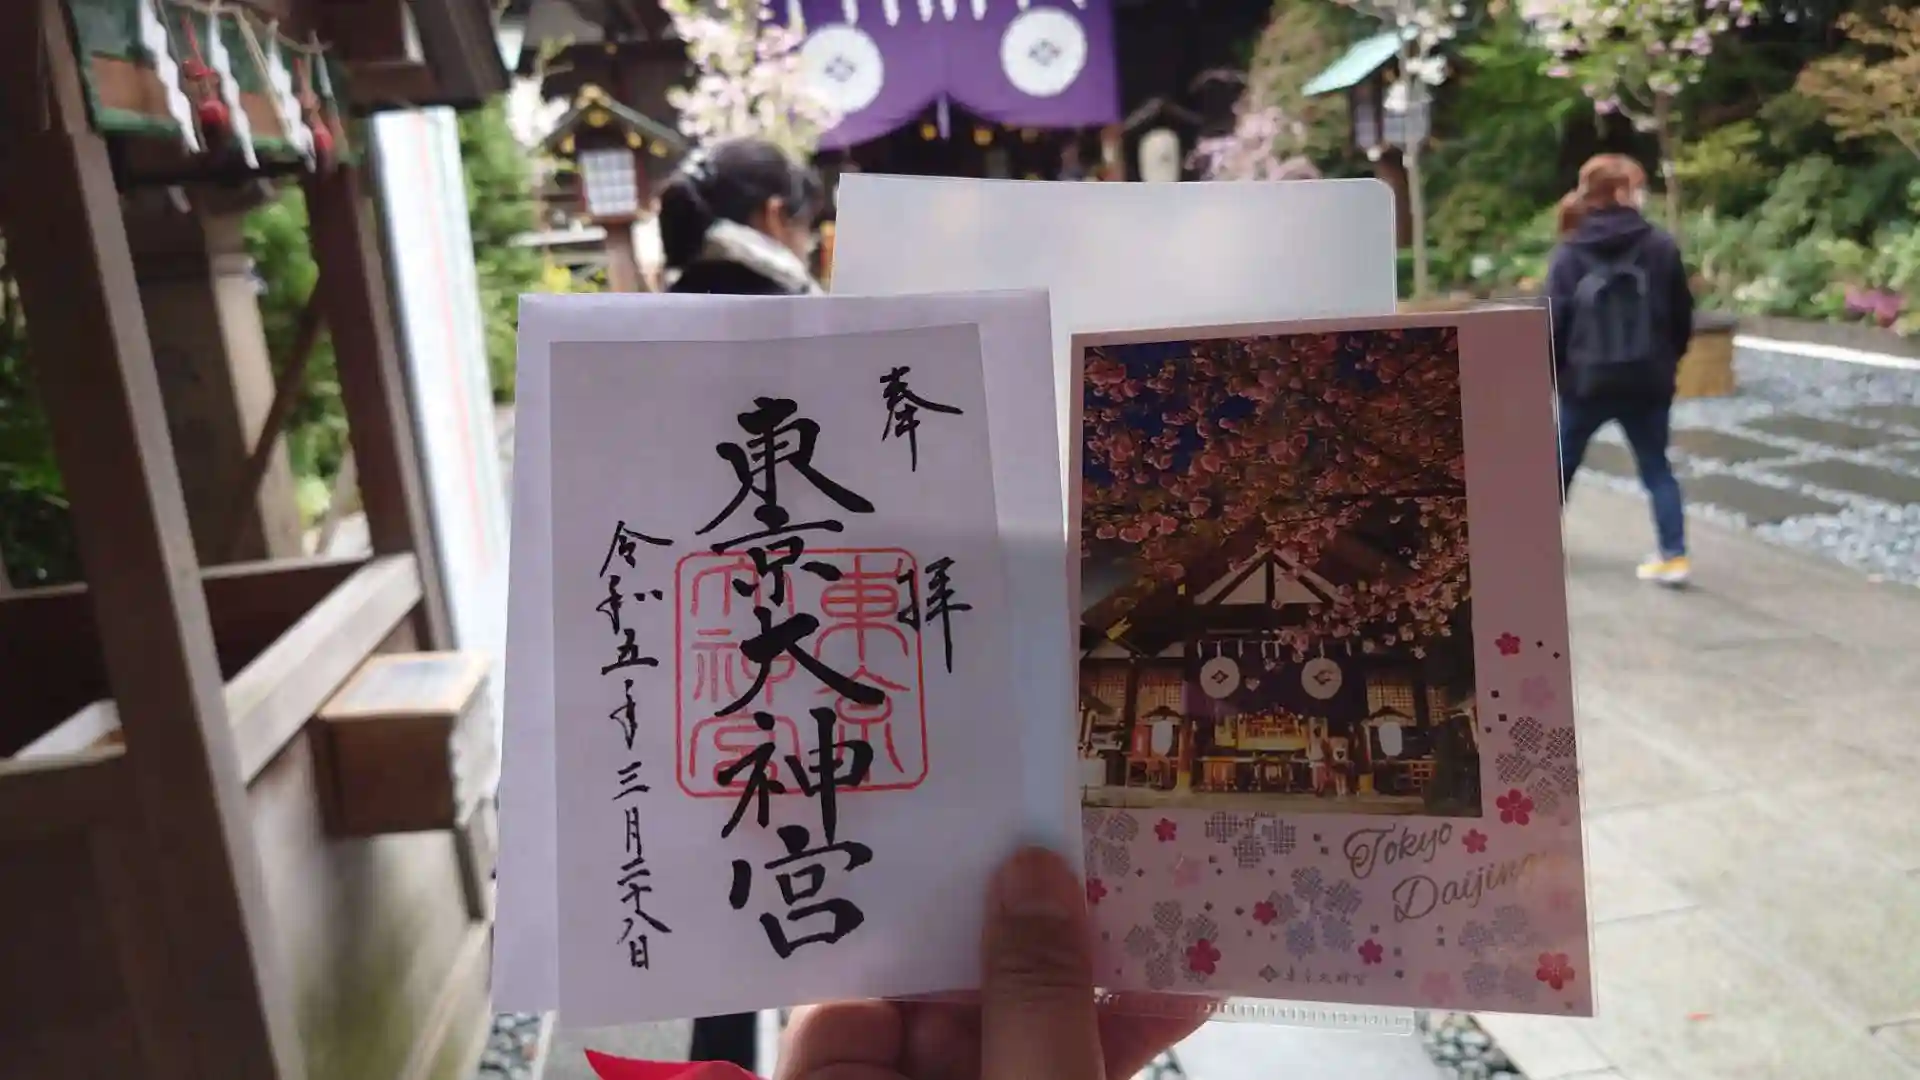 奉拝
東京大神宮
令和五年三月二十八日
東京大神宮
Tokyo
Daijing
東京大神宮